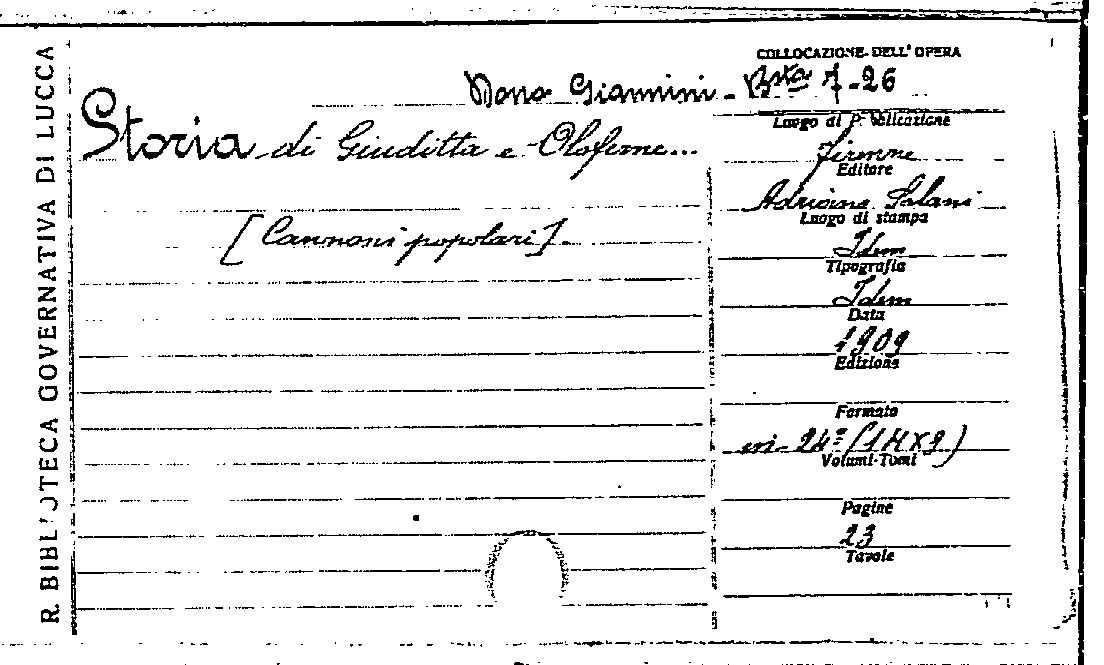 R. BIBLIOTECA GOVERNATIVA DI LUCCA
COLLOCAZIONE DELL'OPERA
Dono Giannini - Bsta 7-26
Storia di Giuditta e Oloferne...
[Canzoni popolari].
Luogo di Pubblicazione
Firenze
Editore
Adriano Salani
Luogo di stampa
Idem
Tipografia
Idem
Data
1909
Edizione
Formato
in-24º (14X9)
Volumi-Tomi
Pagine
23
Tavole